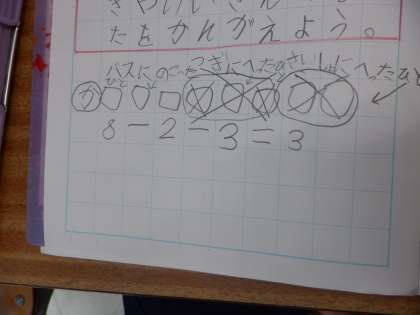 たをかんがえよう。
バスにのこった つぎにへった さいしょにへったひと
ひと
ず
8-2-3=3